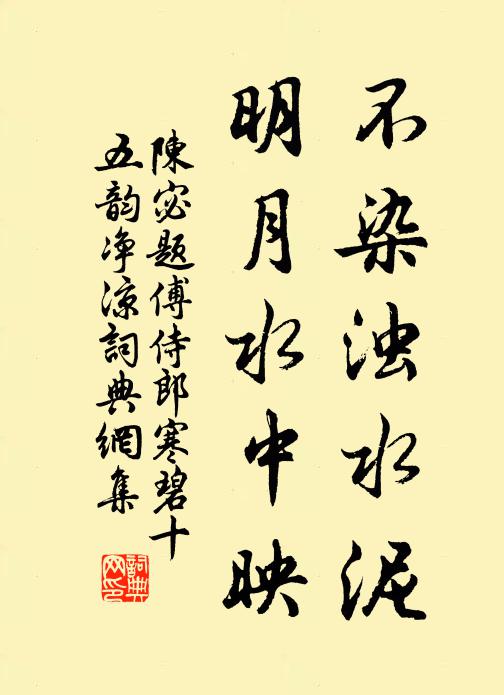 不染浊水泥
明月水中映
陳宓题傅侍郎寒碧十
五韵净凉詞典網集
詞典网印